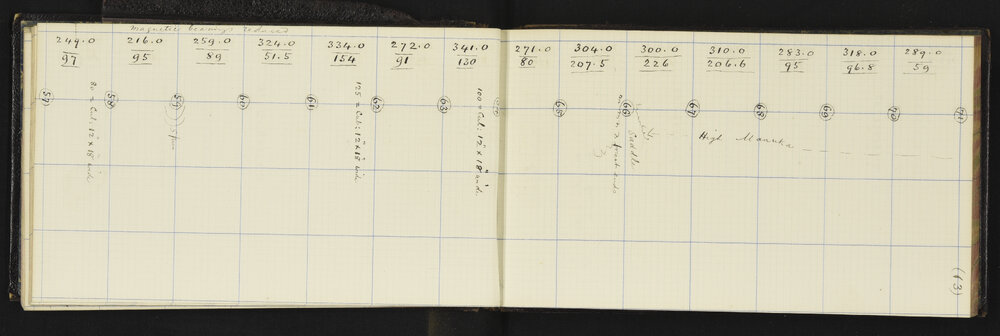 Magnetic bearings reduced
249.0 216.0 259.0 324.0 334.0 272.0 341.0 271.0 304.0 300.0 310.0 283.0 318.0 289.0
97 95 89 51.5 154 91 130 80 207.5 226 206.6 95 96.8 59
57 58 59 60 61 62 63 65 66 67 68 69 70 71
80 = Cul: 12" x 18" wide
Spur
125 = Cul: 12" x 18" wide
100 = Cul: 12" x 18" wide
Saddle
High Manuka
(13)